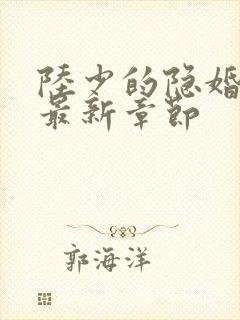 陸少的隐婚
最新章節
郭海洋